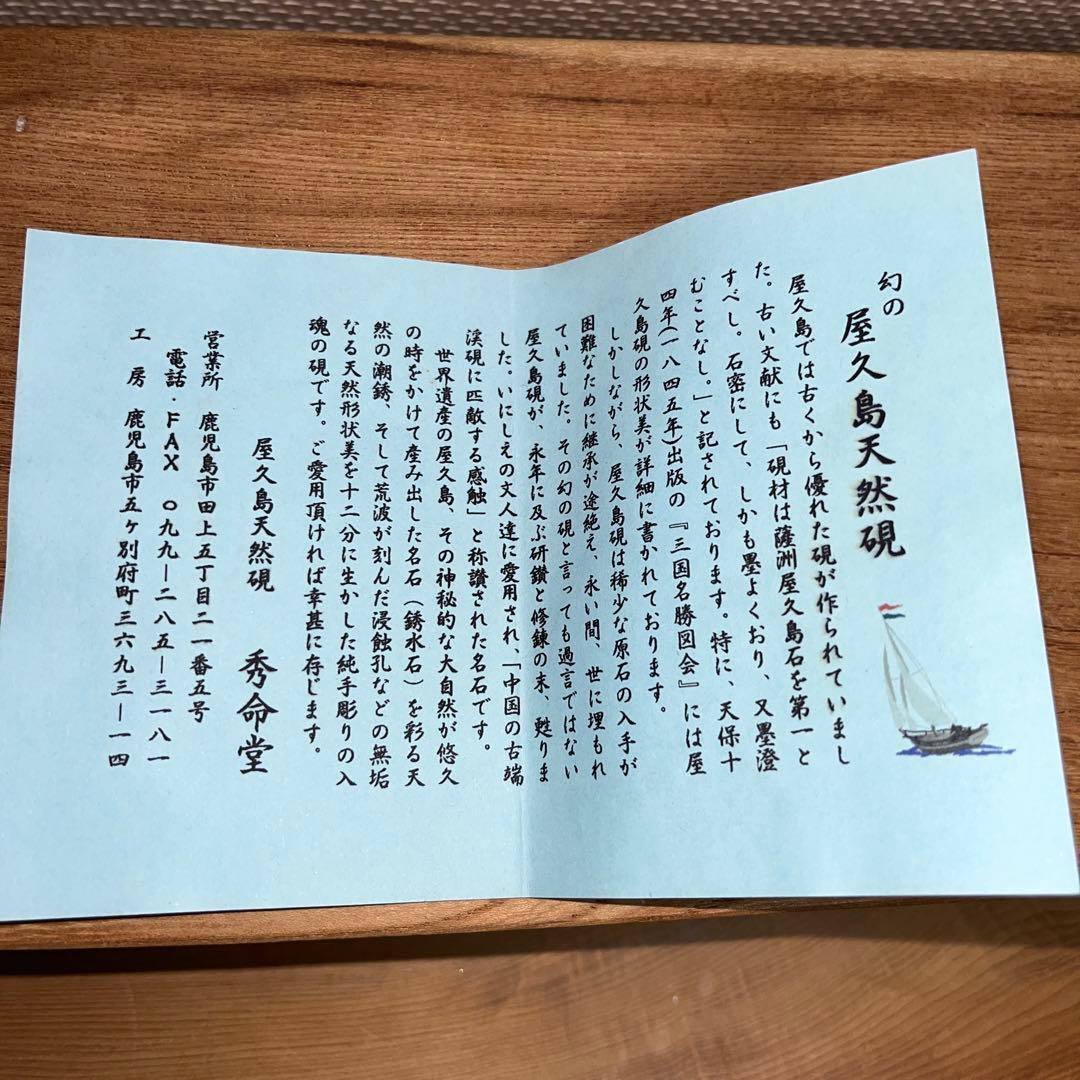 幻の
屋久島天然硯
屋久島では古くから優れた硯が作られていまし
た。古い文献にも「硯材は薩洲屋久島石を第一と
すべし。石密にして、しかも墨よくおり、又墨澄
むことなし。」と記されております。特に、天保十
四年(一八四五年)出版の『三国名勝図会』には屋
久島硯の形状美が詳細に書かれております。
しかしながら、屋久島硯は稀少な原石の入手が
困難なために継承が途絶え、永い間、世に埋もれ
ていました。その幻の硯と言っても過言ではない
屋久島硯が、永年に及ぶ研鑽と修錬の末、甦りま
した。いにしえの文人達に愛用され、「中国の古端
渓硯に匹敵する感触」と称讃された名石です。
世界遺産の屋久島、その神秘的な大自然が悠久
の時をかけて産み出した名石（銹水石）を彩る天
然の潮銹、そして荒波が刻んだ浸蝕孔などの無垢
なる天然形状美を十二分に生かした純手彫りの入
魂の硯です。ご愛用頂ければ幸甚に存じます。
屋久島天然硯　秀命堂
営業所　鹿児島市田上五丁目二一番五号
電話・FAX　〇九九―二八五―三一八一
工　房　鹿児島市五ヶ別府町三六九三―一四